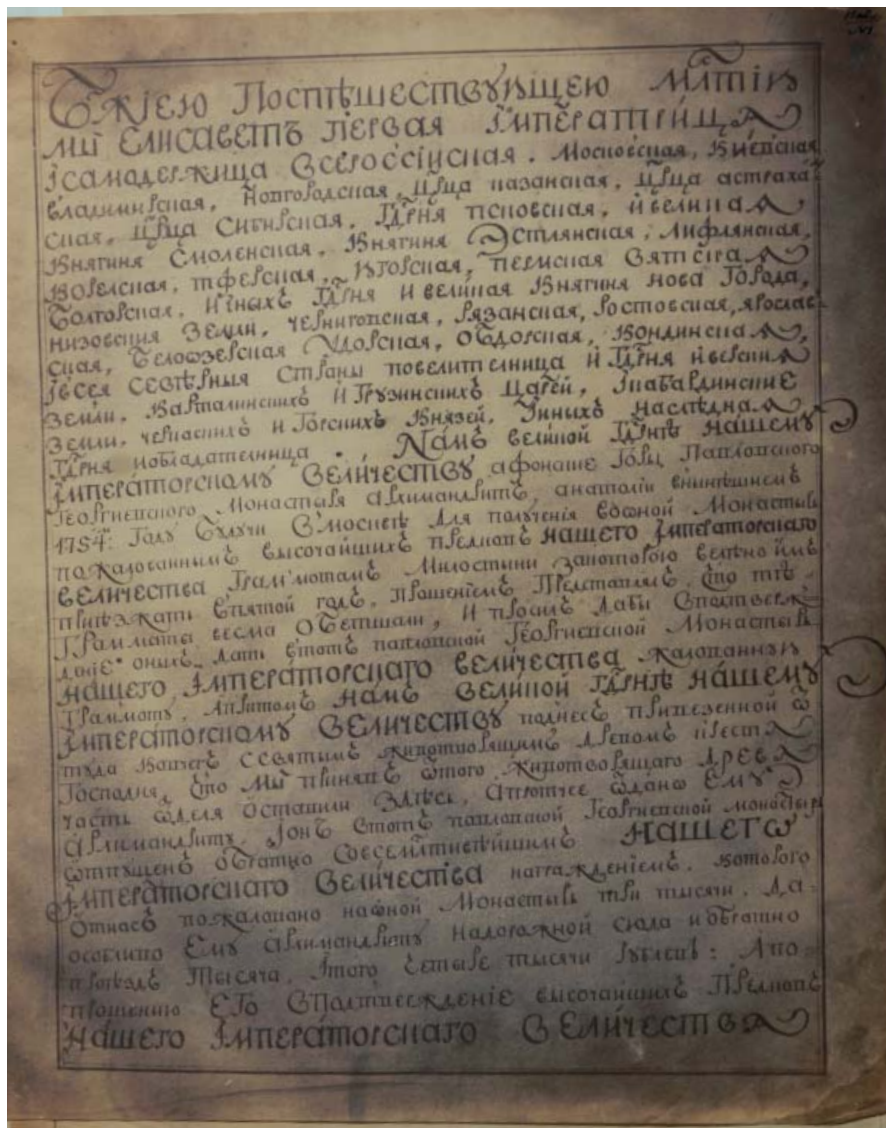 Бжіею Поспѣшествующею млтію
мы Елисаветъ первая Імператрица
Ісамодержица Всероссіиская. Московская, Киевская
владимирская, Новгородская, Црца казанская, Црца астраха
ская, Црца Сибирская, Гдрня псковская, ивеликая
Княгиня Смоленская, Княгиня Эстлянская, Лифлянская,
Корелская, тферская, Югорская, пермская Вятская
Болгорская, Ииныхъ Гдрня ивеликая Княгиня Нова Города,
низовския Земли, черниговская, Рязанская, Ростовская, ярослав
ская, Белоозерская Удорская, Обдорская, Кондинская,
Івсея Сѣверныя Страны повелителница и Гдрня иверския
Земли, Карталинскихъ и Грузинскихъ Царей, Ікабардинские
Земли, черкаскихъ и Горскихъ Князей, Ииныхъ наслѣдная
Гдрня иобладателница. Намъ великой Гдрнѣ нашему
Імператорскому Величеству афонские Горы Павловского
Георгиевского Монастыря Архимандритъ, анатоли внынѣшнемъ
1754: Году Будучи Вмосквѣ для получения воѡной Монастырь
пожалованнымъ высочайшихъ предковъ нашего Імператорскаго
величества Граммотамъ Милостыни закоторою велѣно имъ
приѣзжати впятой годъ, прошениемъ Представлялъ, что тѣ
Граммоты весма Обетшали, и просилъ дабы Вподтверж
дение оныхъ дать втотъ павловской Георгиевской Монастырь
нашего Імператорскаго величества жалованную
Граммоту, апритомъ намъ великой Гдрнѣ нашему
Імператорскому Величеству поднесъ привезенной ѿ
туда Ковчегъ Ссвятымъ животворящимъ древомъ креста
Господня, что Мы принявъ ѿтого животворящаго древа
часть ѿделя Оставили Здѣсь, апротчее ѿдано Ему
Архимандриту, Іонъ втотъ павловской Георгиевской монастырь
ѿтпущенъ Обратно Совсемлтивѣйшимъ нашего
Імператорскаго Величества награждениемъ, Которого
Отнасъ пожаловано наѡной Монастырь три тысячи, Да
особливо Ему Архимандриту надорожной сюда иобратно
проѣздъ Тысяча, Ітого Четыре тысячи рублевъ: Апо
прошению Его Вподтверждение высочайшихъ Предковъ
нашего Імператорскаго Величества